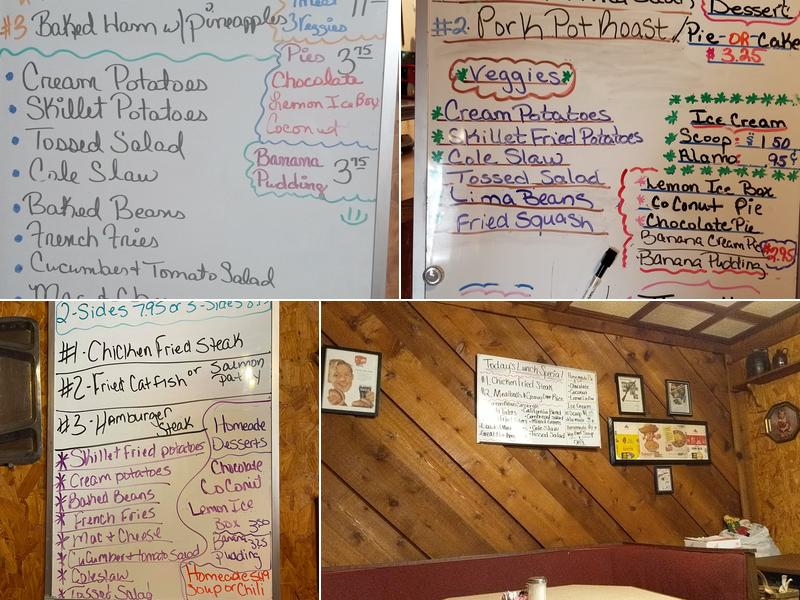 #3 Baked Ham w/pineapples
3 Veggies
Pies 3.75
Chocolate
Lemon Ice Box
Coconut
Banana
Pudding 3.75
Cream Potatoes
Skillet Potatoes
Tossed Salad
Cole Slaw
Baked Beans
French Fries
Cucumber + Tomato Salad
Dessert
#2. Pork Pot Roast / Pie-OR-Cake
$3.25
Veggies
Cream Potatoes
Skillet Fried Potatoes
Cole Slaw
Tossed Salad
Lima Beans
Fried Squash
Ice Cream
Scoop: $1.50
Alamo: 95¢
Lemon Ice Box
CoConut Pie
Chocolate Pie
Banana Cream Pie
$2.95
Banana Pudding
2-Sides 7.95 or 3-Sides
#1-Chicken Fried Steak
#2-Fried Catfish or Salmon patty
#3-Hamburger Steak
Skillet Fried potatoes
Cream potatoes
Baked Beans
French Fries
Mac + Cheese
Cucumber + tomato Salad
Coleslaw
Tossed Salad
Homeade
Desserts
Chocolate
CoConut
Lemon Ice
Box 3.50
Banana 3.25
Pudding
Homeade
Soup or Chili
Today's Lunch Special
#1. Chicken Fried Steak
#2. Meatloaf
Cole Slaw
Tossed Salad
Ice Cream